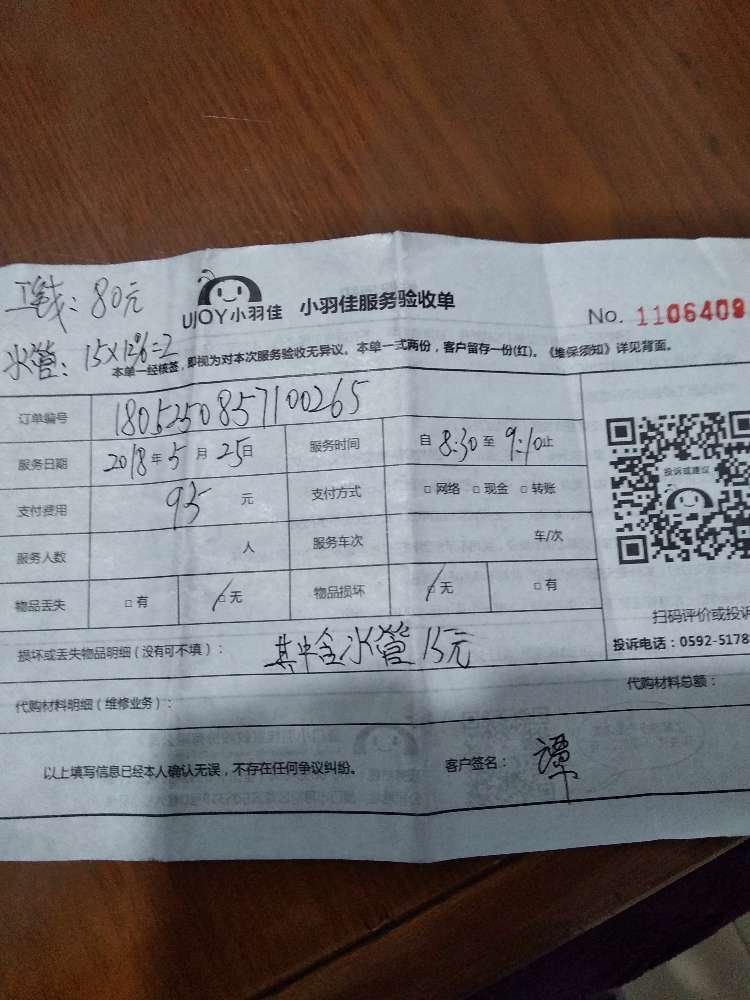 工钱：80元
UJOY小羽佳 小羽佳服务验收单 No. 1106409
水管：15×12%=2
本单一经核签，即视为对本次服务验收无异议。本单一式两份，客户留存一份(红)。《维保须知》详见背面。
订单编号 1805250857100265
服务日期 2018年5月25日 服务时间 自8:30至9:10止
支付费用 95元 支付方式 □网络 □现金 □转账
投诉或建议
服务人数 人 服务车次 车/次
物品丢失 □有 □无 物品损坏 □无 □有
扫码评价或投诉
损坏或丢失物品明细（没有可不填）： 其中含水管15元
投诉电话：0592-5178
代购材料明细（维修业务）： 代购材料总额：
以上填写信息已经本人确认无误，不存在任何争议纠纷。 客户签名：